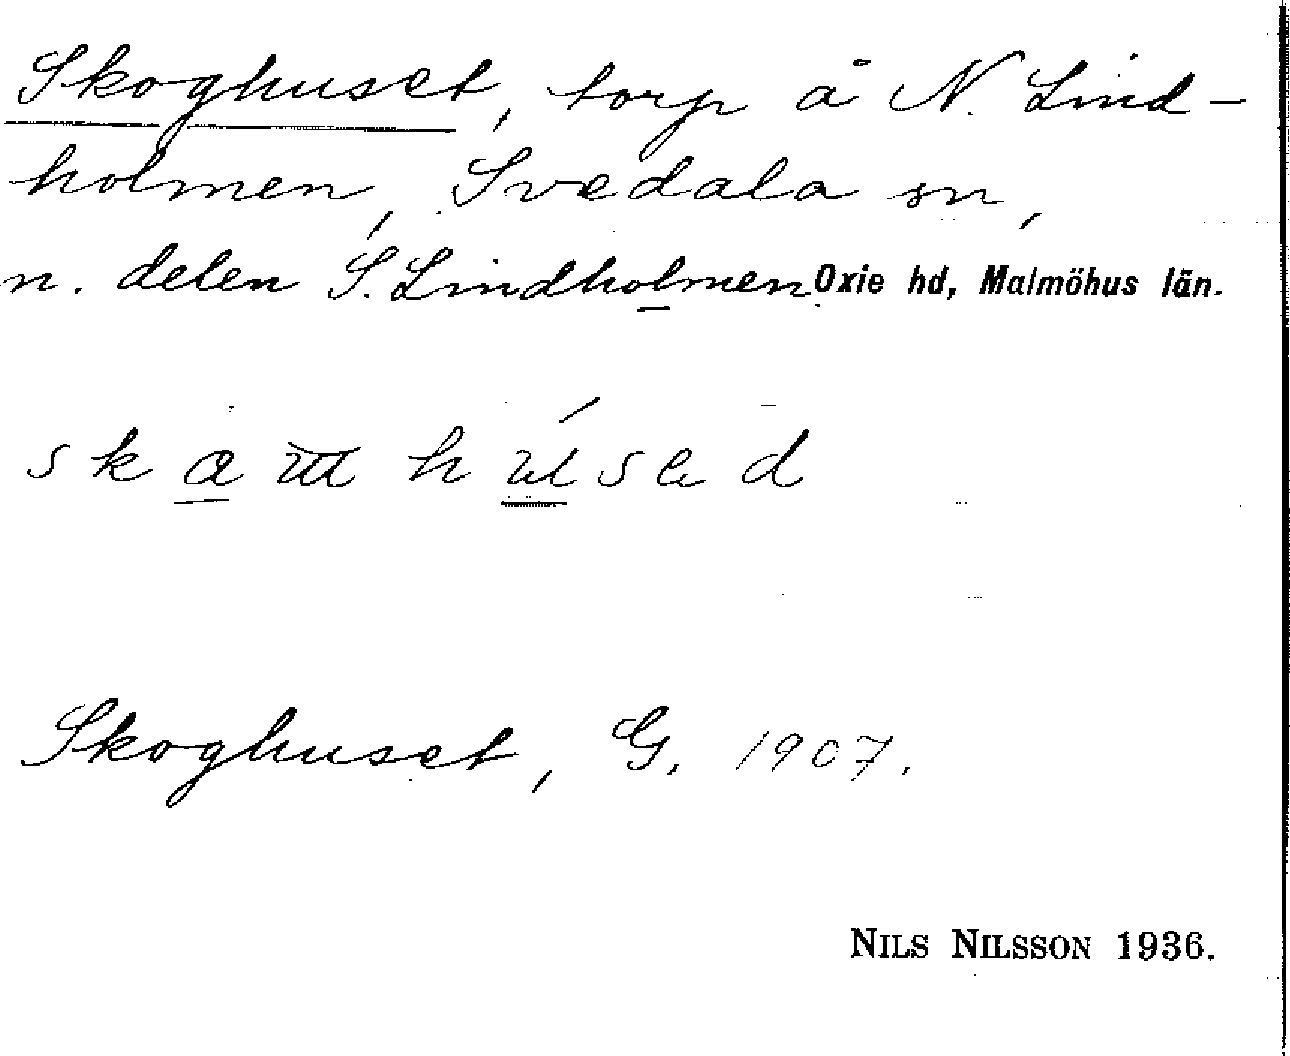 Skoghuset, torp å N. Lind-
holmen, Svedala sn,
n. delen S. Lindholmen Oxie hd, Malmöhus län.
Skoghuset, G. 1907.
NILS NILSSON 1936.